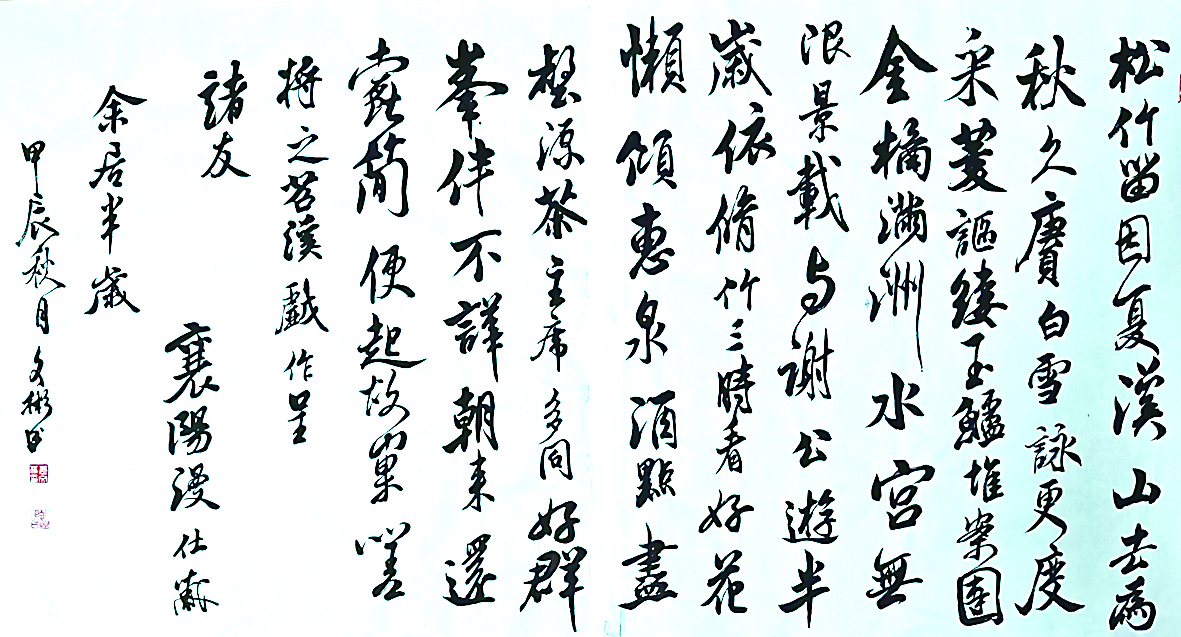 松竹留因夏溪山去為
秋久賡白雪詠更度
采菱謳縷玉鱸堆案團
金橘滿洲水宮無
限景載与謝公遊半
歲依脩竹三時看好花
懶傾惠泉酒點盡
壑源茶主席多同好群
峯伴不譁朝来還
蠹簡便起故巢嗟
將之苕溪戲作呈
諸友
襄陽漫仕黻
余居半歲
甲辰秋月文彬书